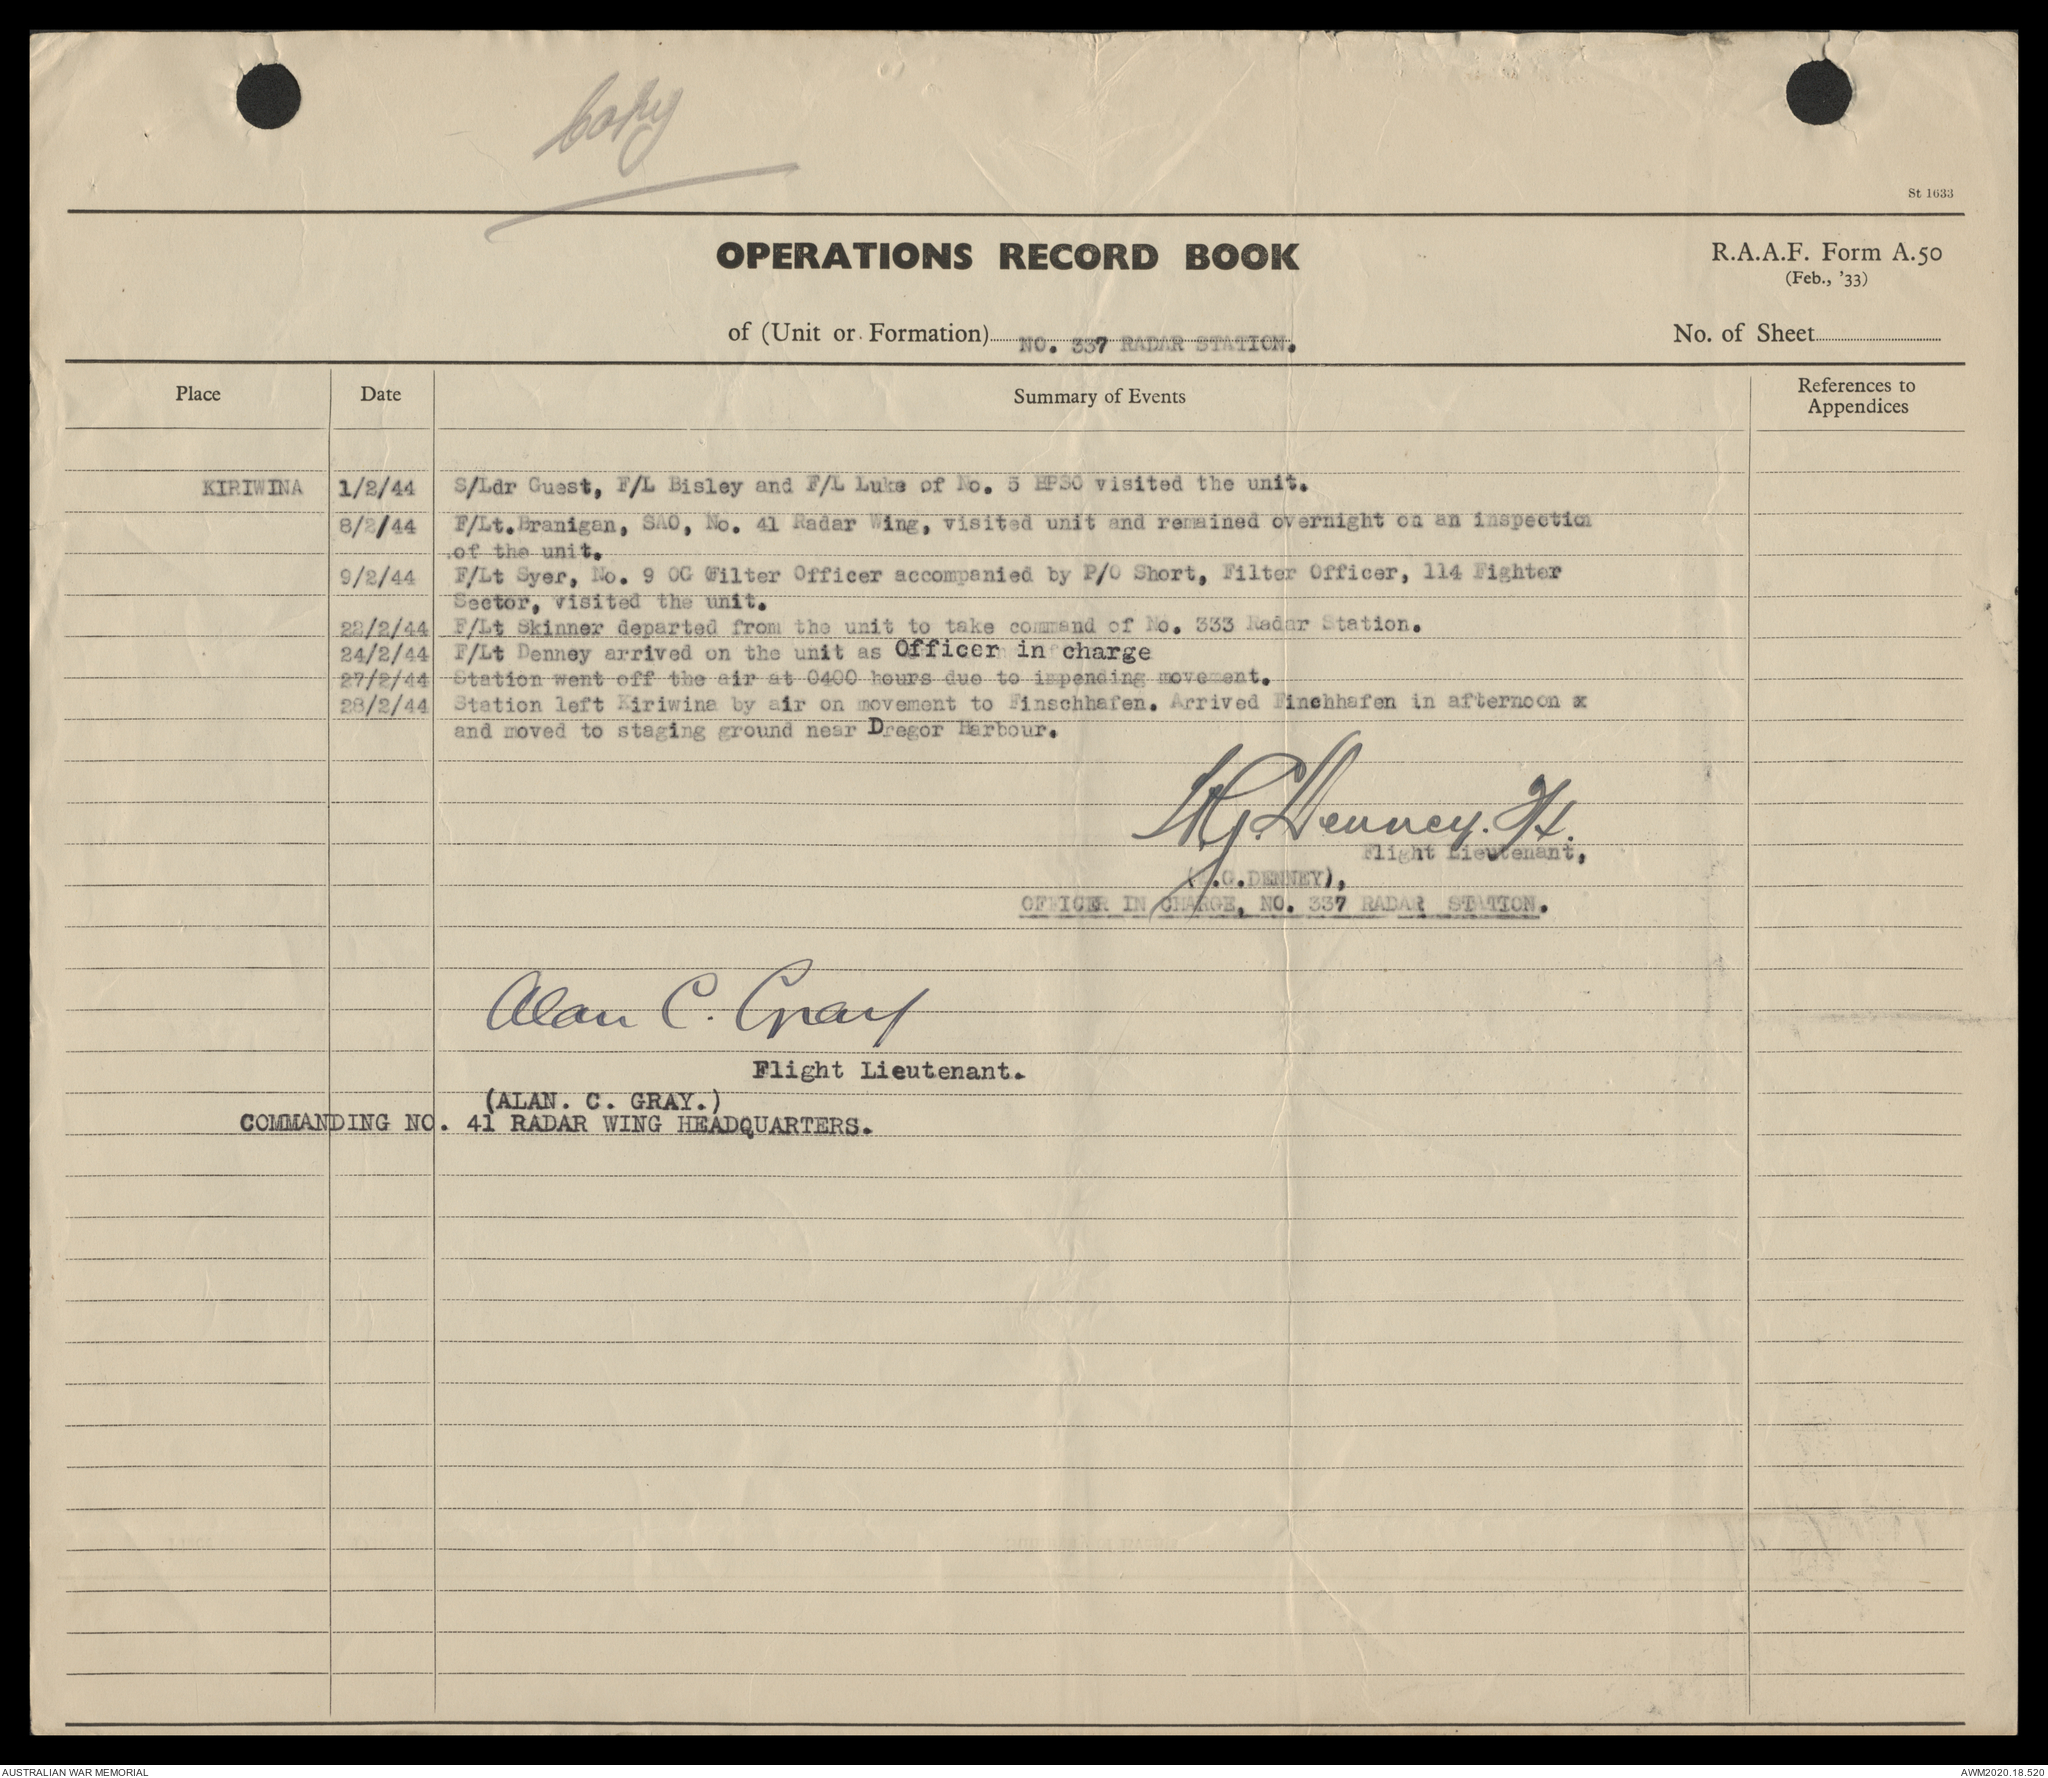 Copy
St 1633
OPERATIONS RECORD BOOK
R.A.A.F. Form A.50
(Feb., '33)
of (Unit or Formation) NO. 337 RADAR STATION.
No. of Sheet
Place
Date
Summary of Events
References to
Appendices
KIRIWINA 1/2/44 S/Ldr Guest, F/L Bisley and F/L Luke of No. 5 EPSO visited the unit.
8/2/44 F/Lt.Branigan, SAO, No. 41 Radar Wing, visited unit and remained overnight on an inspection
of the unit.
9/2/44 F/Lt Syer, No. 9 OG Filter Officer accompanied by P/O Short, Filter Officer, 114 Fighter
Sector, visited the unit.
22/2/44 F/Lt Skinner departed from the unit to take command of No. 333 Radar Station.
24/2/44 F/Lt Denney arrived on the unit as Officer in charge
27/2/44 Station went off the air at 0400 hours due to impending movement.
28/2/44 Station left Kiriwina by air on movement to Finschhafen. Arrived Finchhafen in afternoon x
and moved to staging ground near Dregor Harbour.
G. Denney. F/Lt.
Flight Lieutenant,
.G.DENNEY),
OFFICER IN CHARGE, NO. 337 RADAR STATION.
Alan C. Gray
Flight Lieutenant.
(ALAN. C. GRAY.)
COMMANDING NO. 41 RADAR WING HEADQUARTERS.
AUSTRALIAN WAR MEMORIAL
AWM2020.18.520